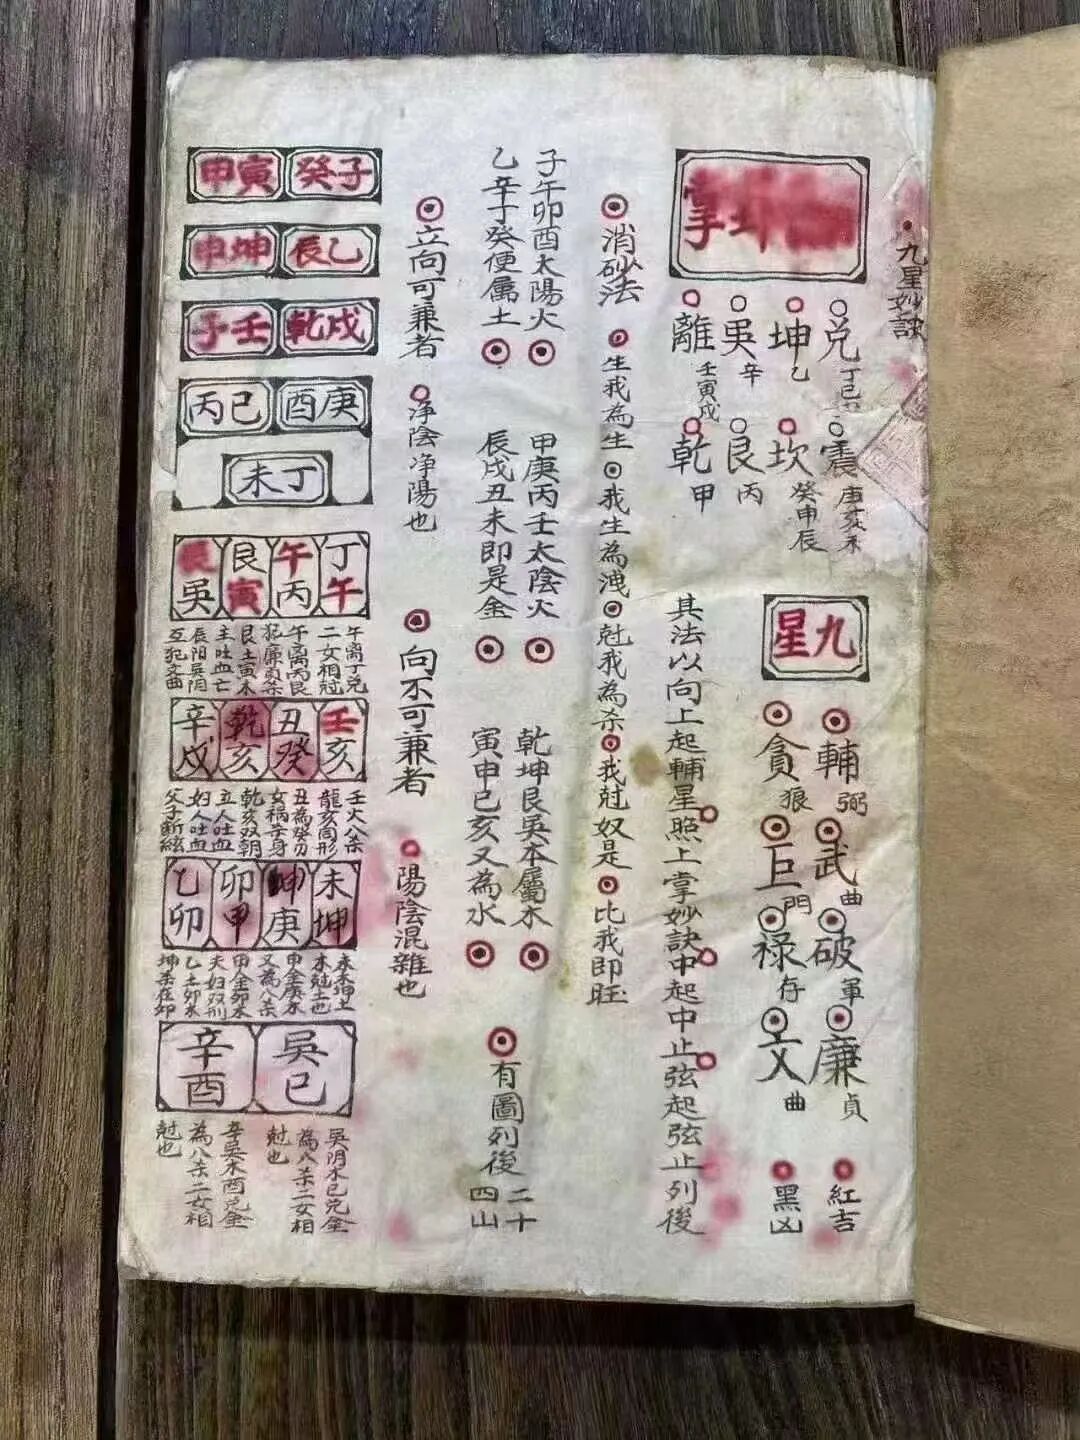 九星妙訣
掌坤
兌 丁巳
坤 乙
巽 辛
離 壬寅戌
震 庚亥未
坎 癸申辰
艮 丙
乾 甲
九星
輔弼
武曲
破軍
廉貞
紅吉
貪狼
巨門
祿存
文曲
黑凶
其法以向上起輔星照上掌妙訣中起中止弦起弦止列後
消砂法
生我為生
我生為洩
尅我為杀
我尅奴是
比我即旺
子午卯酉太陽火
甲庚丙壬太陰火
乾坤艮巽本屬木
乙辛丁癸便屬土
辰戌丑未即是金
寅申巳亥又為水
有圖列後二十四山
立向可兼者
净陰净陽也
向不可兼者
陽陰混雜也
癸子
甲寅
辰乙
申坤
乾戌
子壬
酉庚
丙巳
未丁
丁午
午丙
艮寅
辰巽
午离丁兑
二女相尅
午离丙艮
犯廉貞杀
艮土寅木
主吐血亡
辰阳巽阴
互犯文曲
壬亥
丑癸
乾亥
辛戌
壬火八杀
龍亥同形
丑為癸刃
女祸辛身
乾亥双朝
立人吐血
妇人吐血
父子断絃
未坤
坤庚
卯甲
乙卯
未木坤土
木尅土也
申金癸水
又為八杀
甲金卯木
夫妇双刑
乙土卯木
坤杀在卯
巽巳
辛酉
巽阴木巳兑金
為八杀二女相
尅也
辛巽木酉兑金
為八杀二女相
尅也